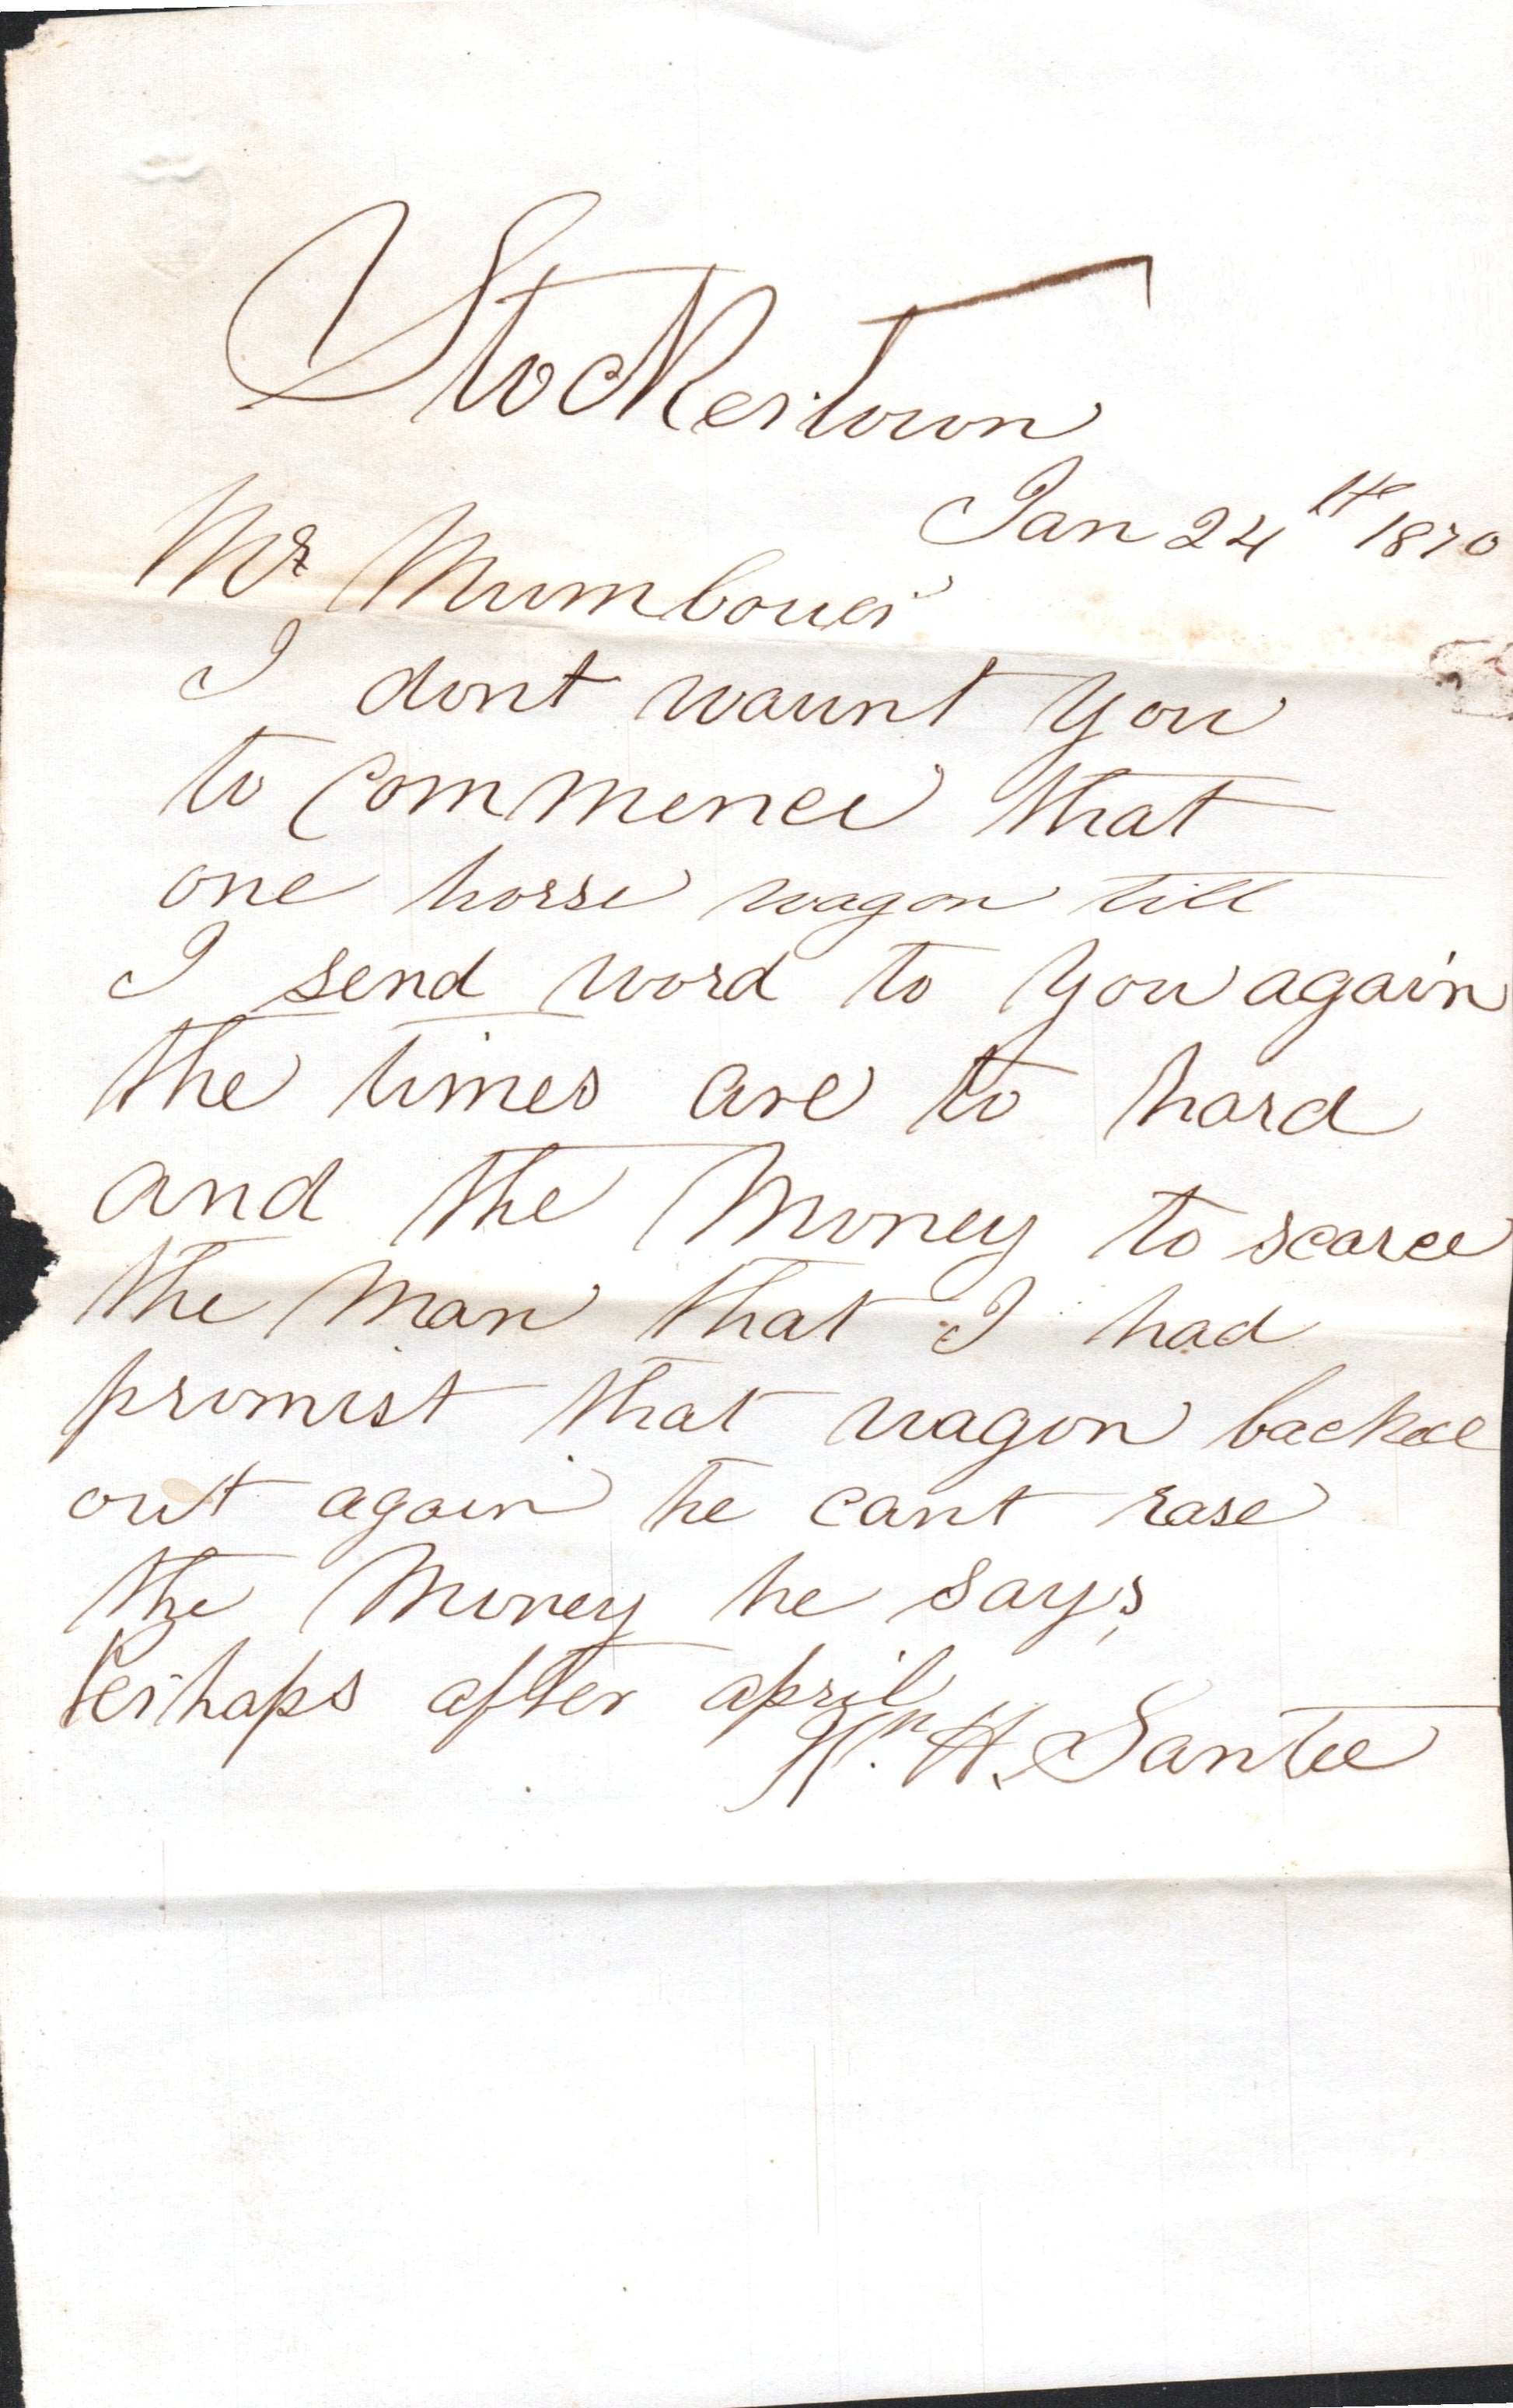 Stockertown
Jan 24th 1870
Mr Mumbouer
I dont waunt you
to commence that
one horse wagon till
I send word to you again
the times are to hard
and the Money to scarce
the Man that I had
promist that wagon backed
out again he cant rase
the Money he says,
Perhaps after april
Wm. H. Santee